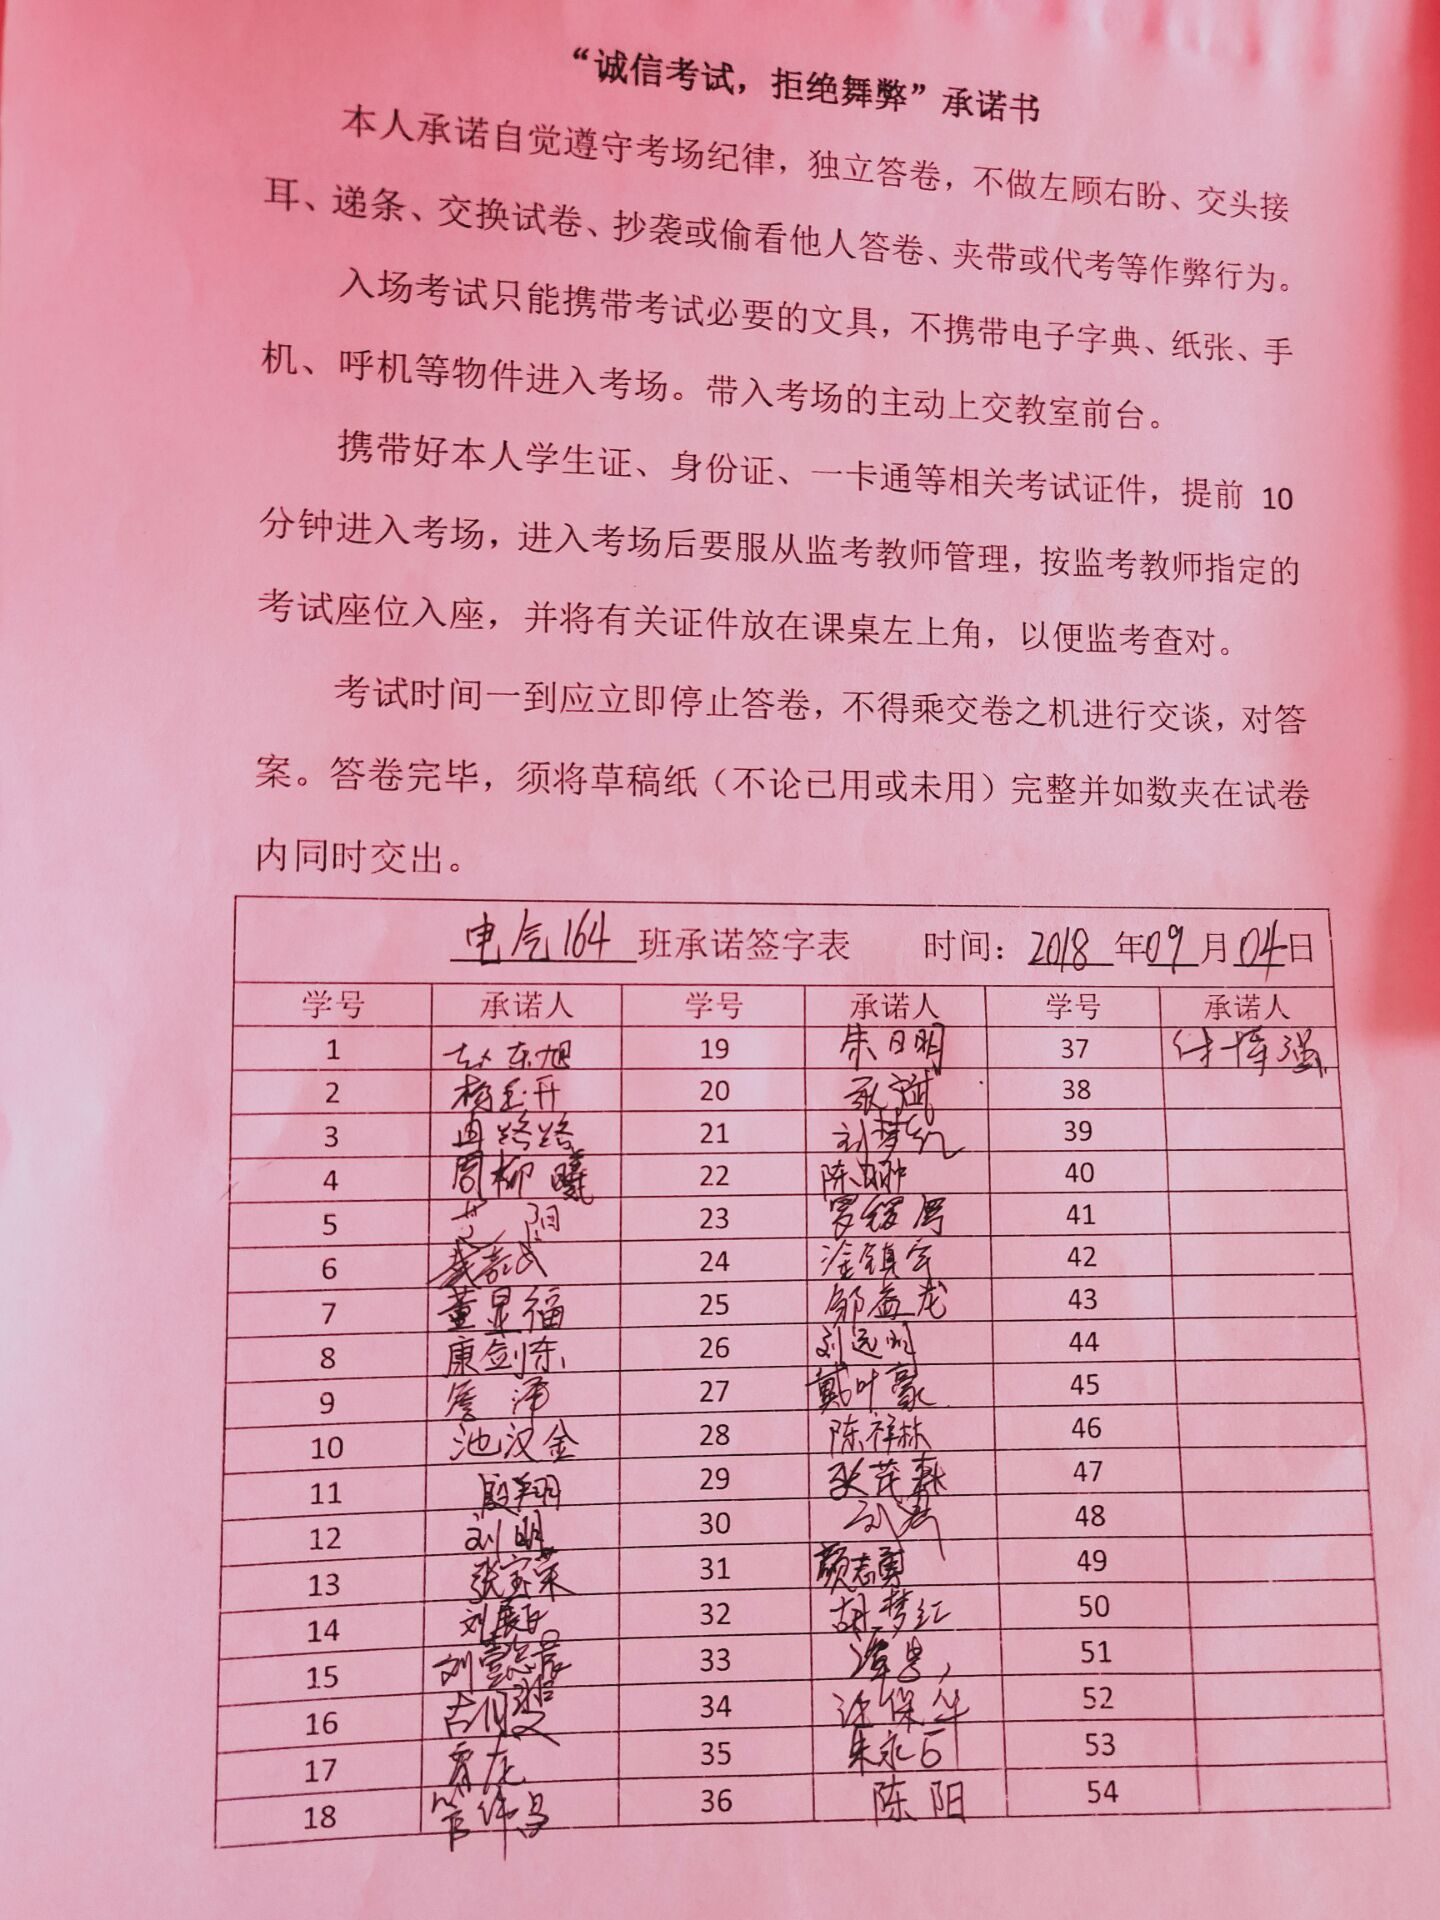 “诚信考试，拒绝舞弊”承诺书
本人承诺自觉遵守考场纪律，独立答卷，不做左顾右盼、交头接
耳、递条、交换试卷、抄袭或偷看他人答卷、夹带或代考等作弊行为。
入场考试只能携带考试必要的文具，不携带电子字典、纸张、手
机、呼机等物件进入考场。带入考场的主动上交教室前台。
携带好本人学生证、身份证、一卡通等相关考试证件，提前 10
分钟进入考场，进入考场后要服从监考教师管理，按监考教师指定的
考试座位入座，并将有关证件放在课桌左上角，以便监考查对。
考试时间一到应立即停止答卷，不得乘交卷之机进行交谈，对答
案。答卷完毕，须将草稿纸（不论已用或未用）完整并如数夹在试卷
内同时交出。
电气164 班承诺签字表 时间：2018 年 09 月 04 日
学号 承诺人 学号 承诺人 学号 承诺人
1 赵东旭 19 朱日明 37
2 杨玉丹 20 38
3 冉路路 21 刘梦 39
4 周柳曦 22 陈 40
5 阳 23 罗 41
6 24 涂镇宇 42
7 董显福 25 邹益龙 43
8 康剑东 26 刘远州 44
9 詹沛 27 戴叶豪 45
10 池汉金 28 陈祥林 46
11 殷翔 29 张茂森 47
12 刘明 30 刘 48
13 张宝荣 31 颜志勇 49
14 刘 32 胡梦红 50
15 刘 33 谭 51
16 古 34 许保华 52
17 龙 35 朱永 53
18 管伟昌 36 陈阳 54